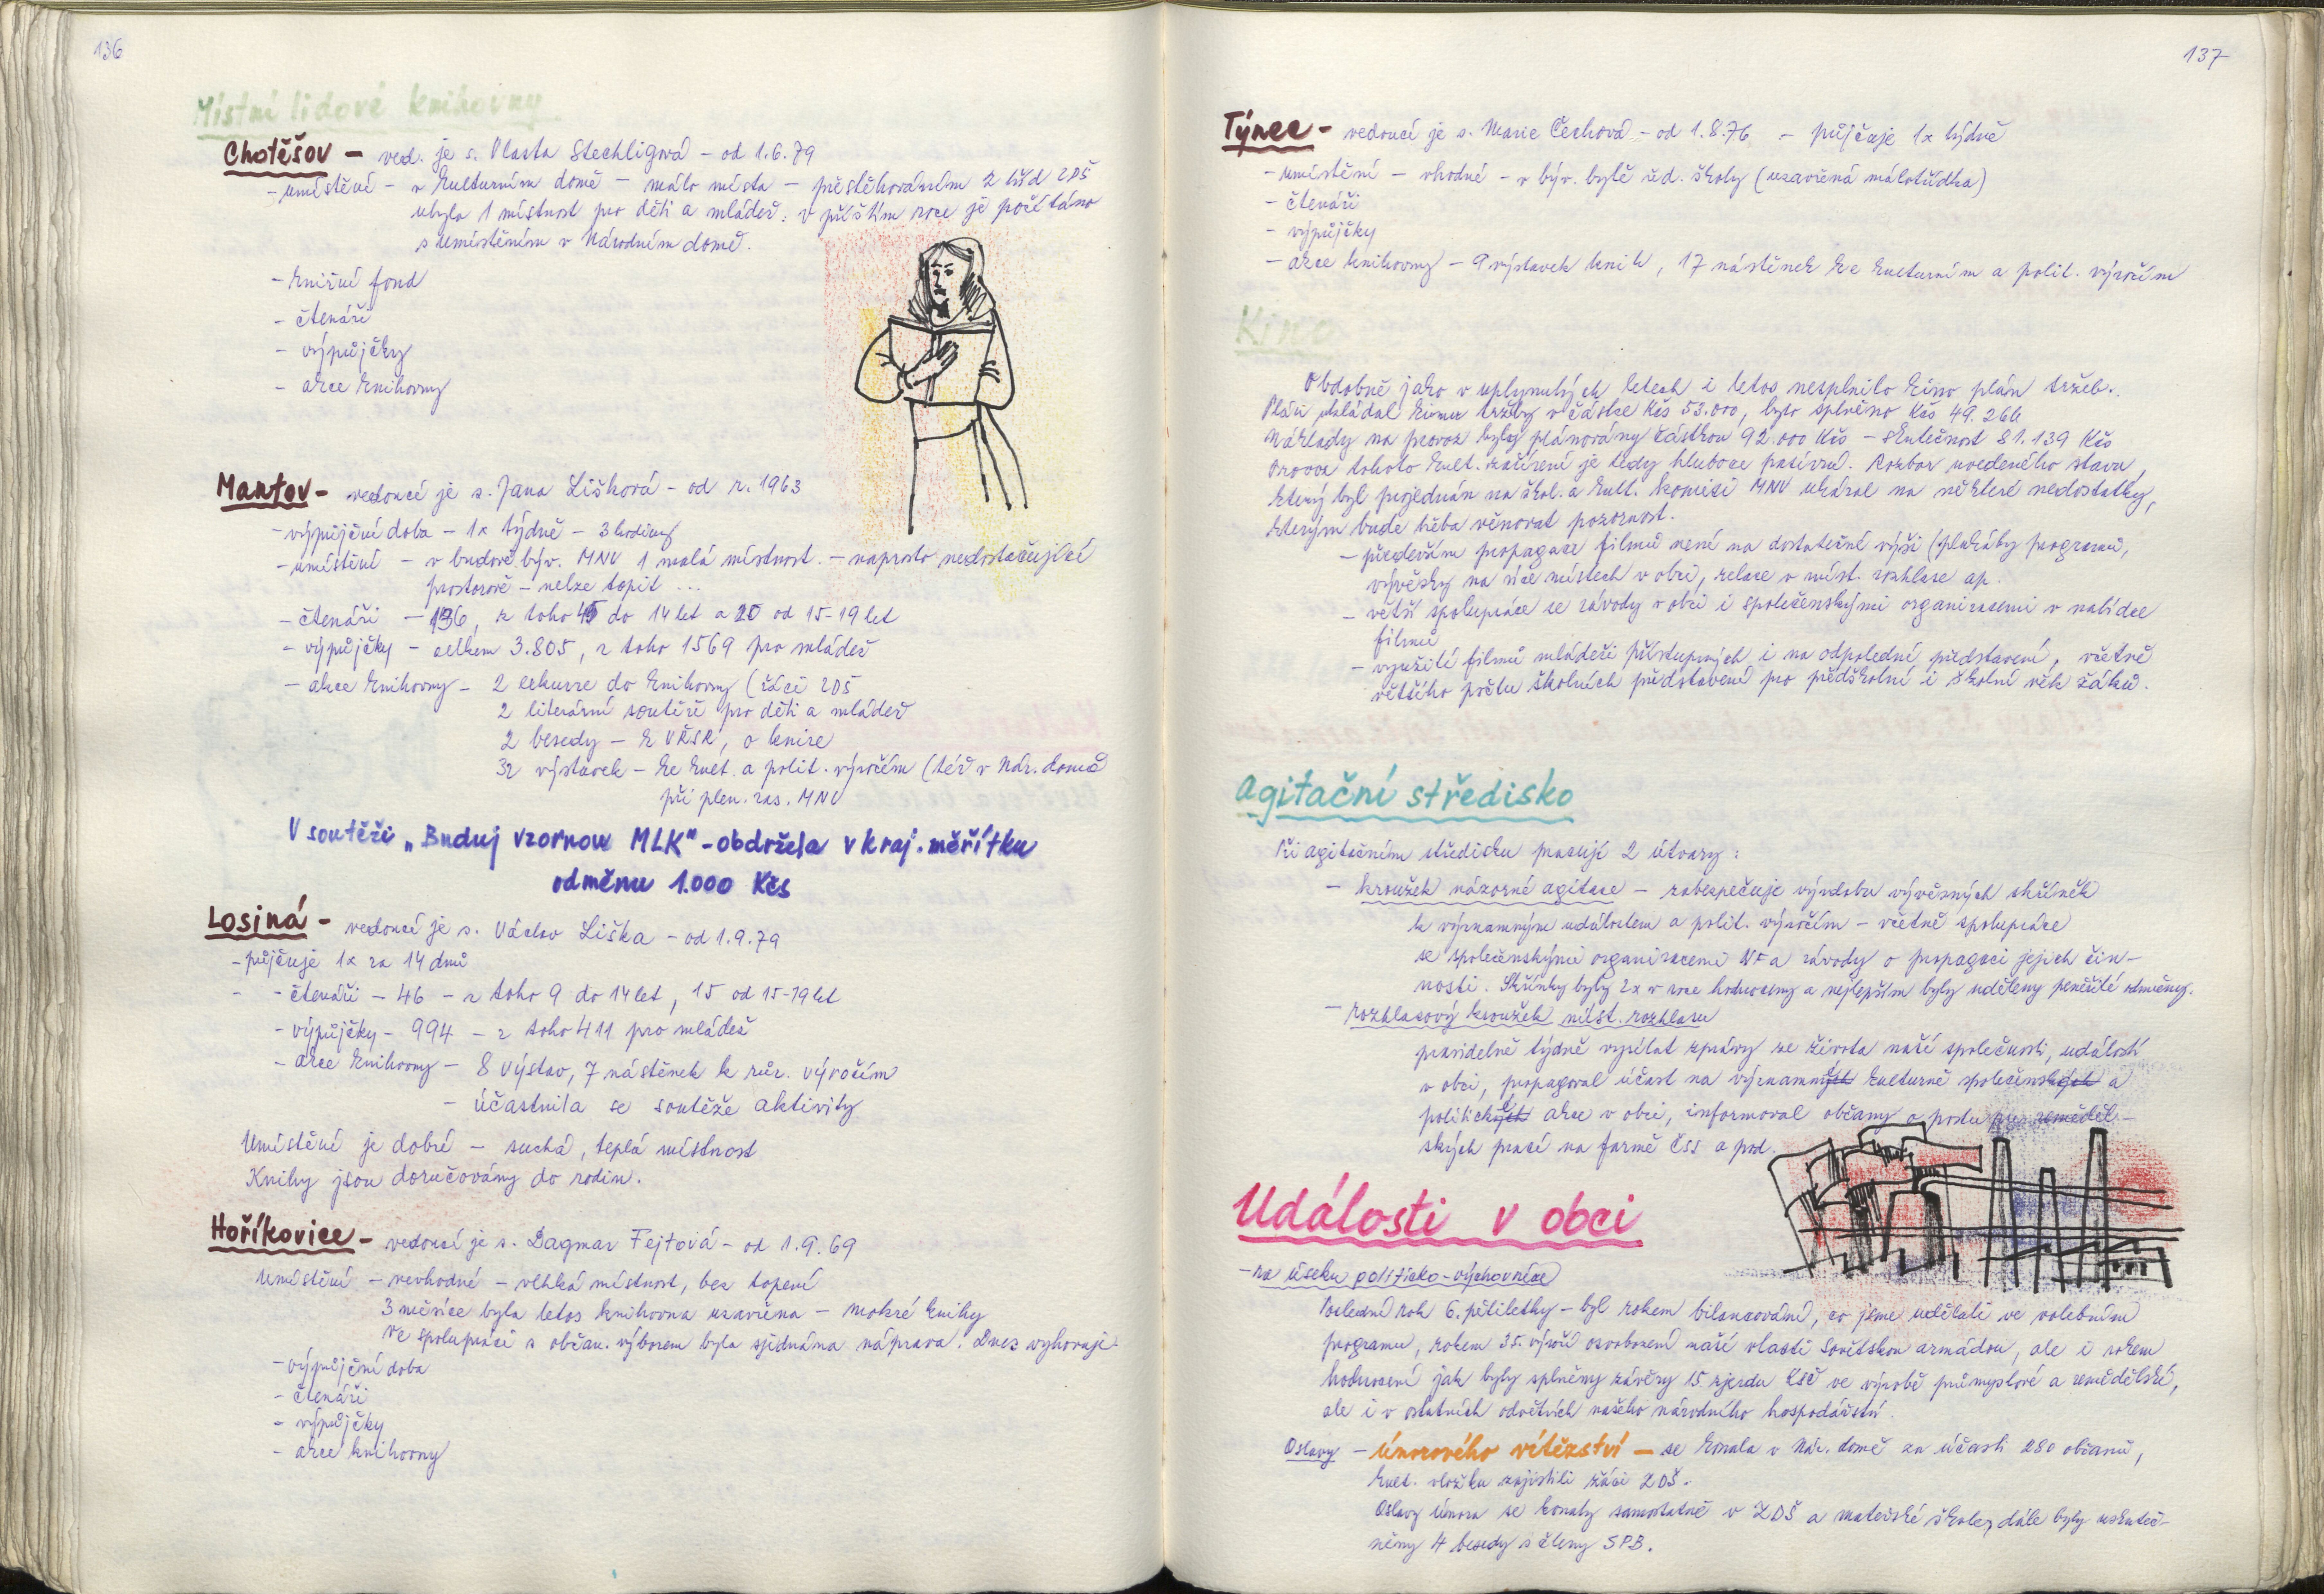 136
Místní lidové knihovny
Chotěšov - ved. je s. Vlasta Stechligová - od 1.6.79
- umístění - v kulturním domě - málo místa - přestěhováním 2 tříd ZDŠ
ubyla 1 místnost pro děti a mládež: v příštím roce je počítáno
s umístěním v Národním domě.
- knižní fond
- čtenáři
- výpůjčky
- akce knihovny
Mantov - vedoucí je s. Jana Lišková - od r. 1963
- výpůjční doba - 1x týdně - 3 hodiny
- umístění - v budově býv. MNV 1 malá místnost - naprosto nedostačující
prostorově - nelze topit ...
- čtenáři - 196, z toho 45 do 14 let a 20 od 15-19 let
- výpůjčky - celkem 3.805, z toho 1569 pro mládež
- akce knihovny - 2 exkurze do knihovny (žáci ZDŠ
2 literární soutěže pro děti a mládež
2 besedy - k VŘSR, o knize
32 výstavek - ke kult. a polit. výročím (též v Nár. domě
při plen. zas. MNV
V soutěži „Buduj vzornou MLK" - obdržela v kraj. měřítku
odměnu 1.000 Kčs
Losiná - vedoucí je s. Václav Liška - od 1.9.79
- půjčuje 1x za 14 dnů
- - čtenáři - 46 - z toho 9 do 14 let, 15 od 15-19 let
- výpůjčky - 994 - z toho 411 pro mládež
- akce knihovny - 8 výstav, 7 nástěnek k růz. výročím
- účastnila se soutěže aktivity
Umístění je dobré - suchá, teplá místnost
Knihy jsou doručovány do rodin.
Hoříkovice - vedoucí je s. Dagmar Fejtová - od 1.9.69
Umístění - nevhodné - vlhká místnost, bez topení
3 měsíce byla letos knihovna uzavřena - mokré knihy
Ve spolupráci s občan. výborem byla sjednána náprava. Dnes vyhovují-
- výpůjční doba
- čtenáři
- výpůjčky
- akce knihovny
137
Týnec - vedoucí je s. Marie Čechová - od 1.8.76 - půjčuje 1x týdně
- umístění - vhodné - v býv. bytě řed. školy (uzavřená málotřídka)
- čtenáři
- výpůjčky
- akce knihovny - 9 výstavek knih, 17 nástěnek ke kulturním a polit. výročím
Kino
Obdobně jako v uplynulých letech i letos nesplnilo kino plán tržeb.
Plán ukládal kinu tržby v částce Kčs 53.000, bylo splněno Kčs 49.266
Náklady na provoz byly plánovány částkou 92.000 Kčs - skutečnost 81.139 Kčs
Provoz tohoto kult. zařízení je tedy hluboce pasívní. Rozbor uvedeného stavu,
který byl projednán na škol. a kult. komisi MNV ukázal na některé nedostatky,
kterým bude třeba věnovat pozornost.
- především propagace filmů není na dostatečné výši (plakáty programů,
vývěsky na více místech v obci, relace v míst. rozhlase ap.
- větší spolupráce se závody v obci i společenskými organizacemi v nabídce
filmů
- využití filmů mládeži přístupných i na odpolední představení, včetně
většího počtu školních představení pro předškolní i školní věk žáků.
Agitační středisko
Při agitačním středisku pracují 2 útvary:
- kroužek názorné agitace - zabezpečuje výzdobu vývěsných skříněk
k významným událostem a polit. výročím - včetně spolupráce
se společenskými organizacemi NF a závody o propagaci jejich čin-
nosti. Skříňky byly 2x v roce hodnoceny a nejlepším byly uděleny peněžité odměny.
- rozhlasový kroužek míst. rozhlasu
pravidelně týdně vysílal zprávy ze života naší společnosti, událostí
v obci, propagoval účast na významných kulturně společenských a
politických akce v obci, informoval občany o postu zeměděl-
ských prací na farmě ČSS a pod.
Události v obci
- na úseku politicko-výchovném
Poslední rok 6. pětiletky - byl rokem bilancování, co jsme udělali ve volebním
programu, rokem 35. výročí osvobození naší vlasti Sovětskou armádou, ale i rokem
hodnocení jak byly splněny závěry 15. sjezdu KSČ ve výrobě průmyslové a zemědělské,
ale i v ostatních odvětvích našeho národního hospodářství.
Oslavy - Únorového vítězství - se konala v Nár. domě za účasti 280 občanů,
kult. vložku zajistili žáci ZDŠ.
Oslavy Února se konaly samostatně v ZDŠ a mateřské škole, dále byly uskuteč-
něny 4 besedy s členy SPB.